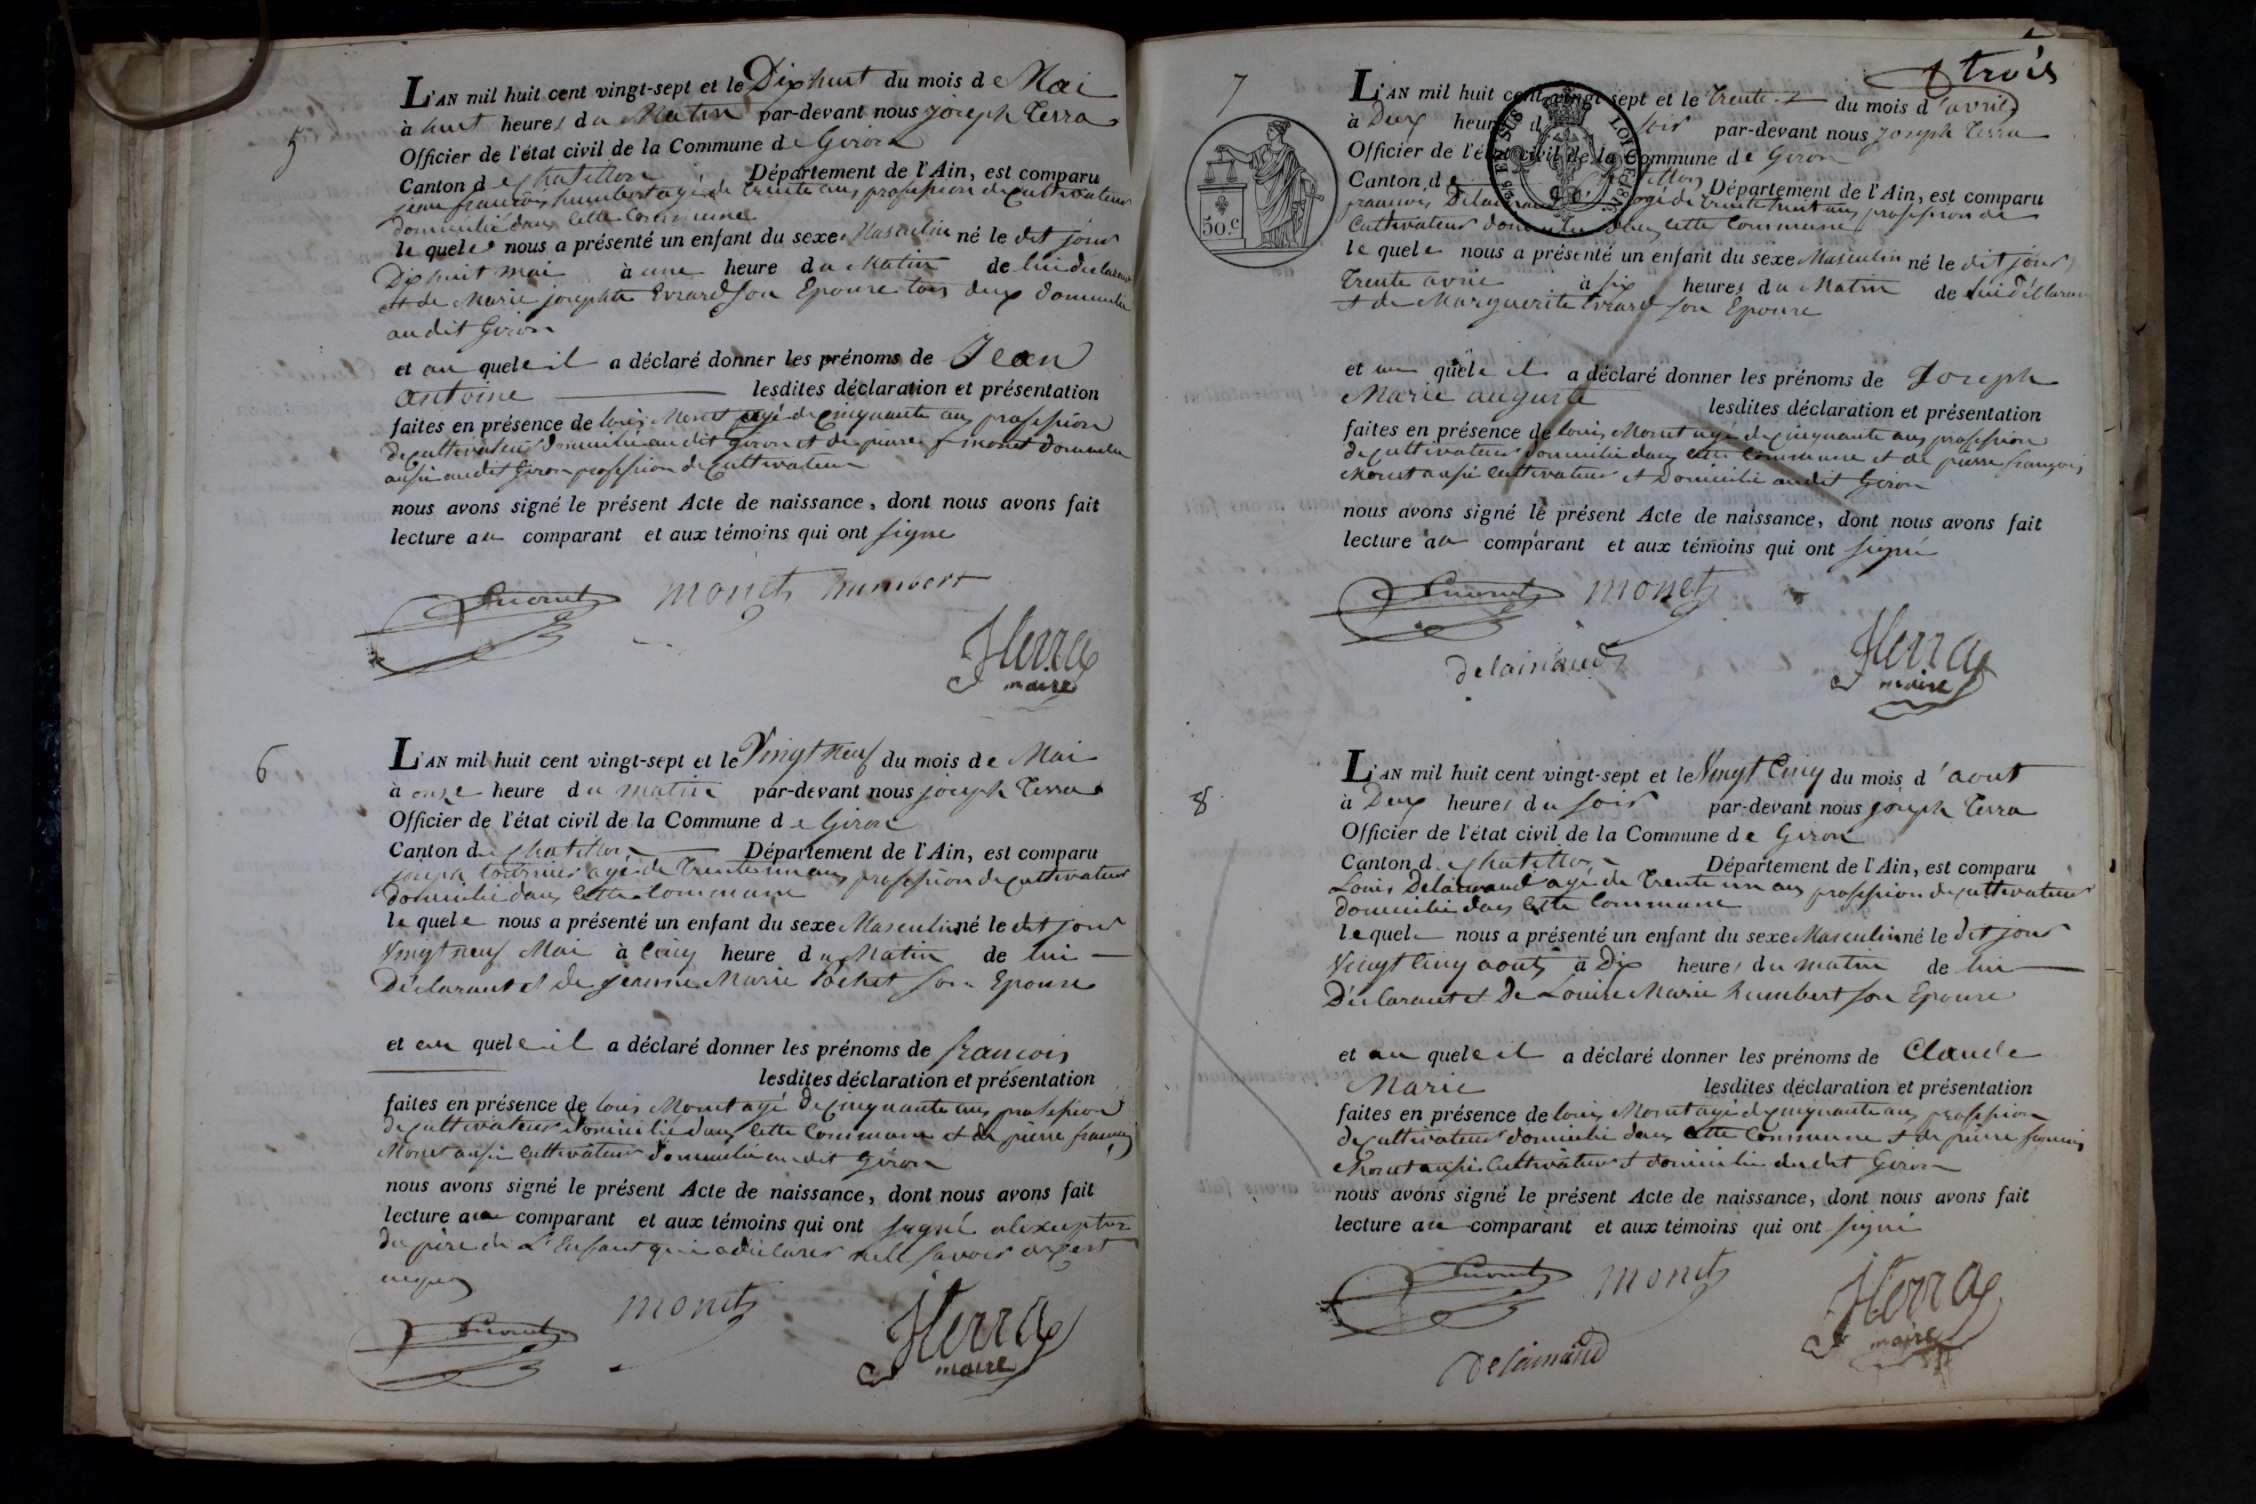 5
L'AN mil huit cent vingt-sept et le Dix huit du mois de Mai
à huit heures du Matin par-devant nous joseph Terra
Officier de l'état civil de la Commune de Giron
Canton de Chatillon Département de l'Ain, est comparu
jean françois humbert agé de trente ans profession de cultivateur
domicilié dans cette Commune
le quele nous a présenté un enfant du sexe Masculin né le dit jour
Dix huit mai à une heure du Matin de lui déclarant
et de Marie josephte Evrard son Epouse tous deux domicilié
au dit Giron
et au quele il a déclaré donner les prénoms de Jean
antoine lesdites déclaration et présentation
faites en présence de louis Monet agé de cinquante ans profession
de cultivateur domicilié au dit giron et de pierre f. monet domicilié
aussi au dit Giron profession de Cultivateur
nous avons signé le présent Acte de naissance, dont nous avons fait
lecture au comparant et aux témoins qui ont signé
monet humbert
JTerra
maire
6
L'AN mil huit cent vingt-sept et le Vingt neuf du mois de Mai
à onze heure du matin par-devant nous joseph Terra
Officier de l'état civil de la Commune de Giron
Canton de Chatillon Département de l'Ain, est comparu
joseph tournier agé de Trente un ans profession de cultivateur
domicilié dans cette Commune
le quele nous a présenté un enfant du sexe Masculin né le dit jour
Vingt neuf Mai à Cinq heure du Matin de lui
Déclarant et de Jeanne Marie Pochet son Epouse
et au quele il a déclaré donner les prénoms de françois
lesdites déclaration et présentation
faites en présence de louis Monet agé de cinquante ans profession
de cultivateur domicilié dans cette Commune et de pierre françois
Monet aussi Cultivateur domicilié au dit Giron
nous avons signé le présent Acte de naissance, dont nous avons fait
lecture au comparant et aux témoins qui ont signé
du père de L'Enfant qui a déclaré savoir
monet
JTerra
maire
trois
7
L'AN mil huit cent vingt-sept et le Trente du mois d'avril
à Deux heures du soir par-devant nous joseph Terra
Officier de l'état civil de la Commune de Giron
Canton de Chatillon Département de l'Ain, est comparu
françois agé de trente huit ans profession de
Cultivateur domicilié dans cette Commune
le quele nous a présenté un enfant du sexe Masculin né le dit jour
Trente avril à six heures du Matin de lui Déclarant
et de Marguerite Evrard son Epouse
et au quele il a déclaré donner les prénoms de Joseph
Marie auguste lesdites déclaration et présentation
faites en présence de louis Monet agé de cinquante ans profession
de cultivateur domicilié dans cette Commune et de pierre françois
Monet aussi Cultivateur et Domicilié au dit Giron
nous avons signé le présent Acte de naissance, dont nous avons fait
lecture au comparant et aux témoins qui ont signé
monet
JTerra
maire
50.c
8
L'AN mil huit cent vingt-sept et le Vingt Cinq du mois d'aout
à Deux heures du soir par-devant nous joseph Terra
Officier de l'état civil de la Commune de Giron
Canton de Chatillon Département de l'Ain, est comparu
Louis agé de Trente un ans profession de cultivateur
domicilié dans cette Commune
le quele nous a présenté un enfant du sexe Masculin né le dit jour
Vingt Cinq aout à Dix heures du matin de lui
Déclarant et De Louise Marie humbert son Epouse
et au quele il a déclaré donner les prénoms de Claude
Marie lesdites déclaration et présentation
faites en présence de louis Monet agé de cinquante ans profession
de cultivateur domicilié dans cette Commune et de pierre françois
Monet aussi Cultivateur et domicilié du dit Giron
nous avons signé le présent Acte de naissance, dont nous avons fait
lecture au comparant et aux témoins qui ont signé
monet
JTerra
maire